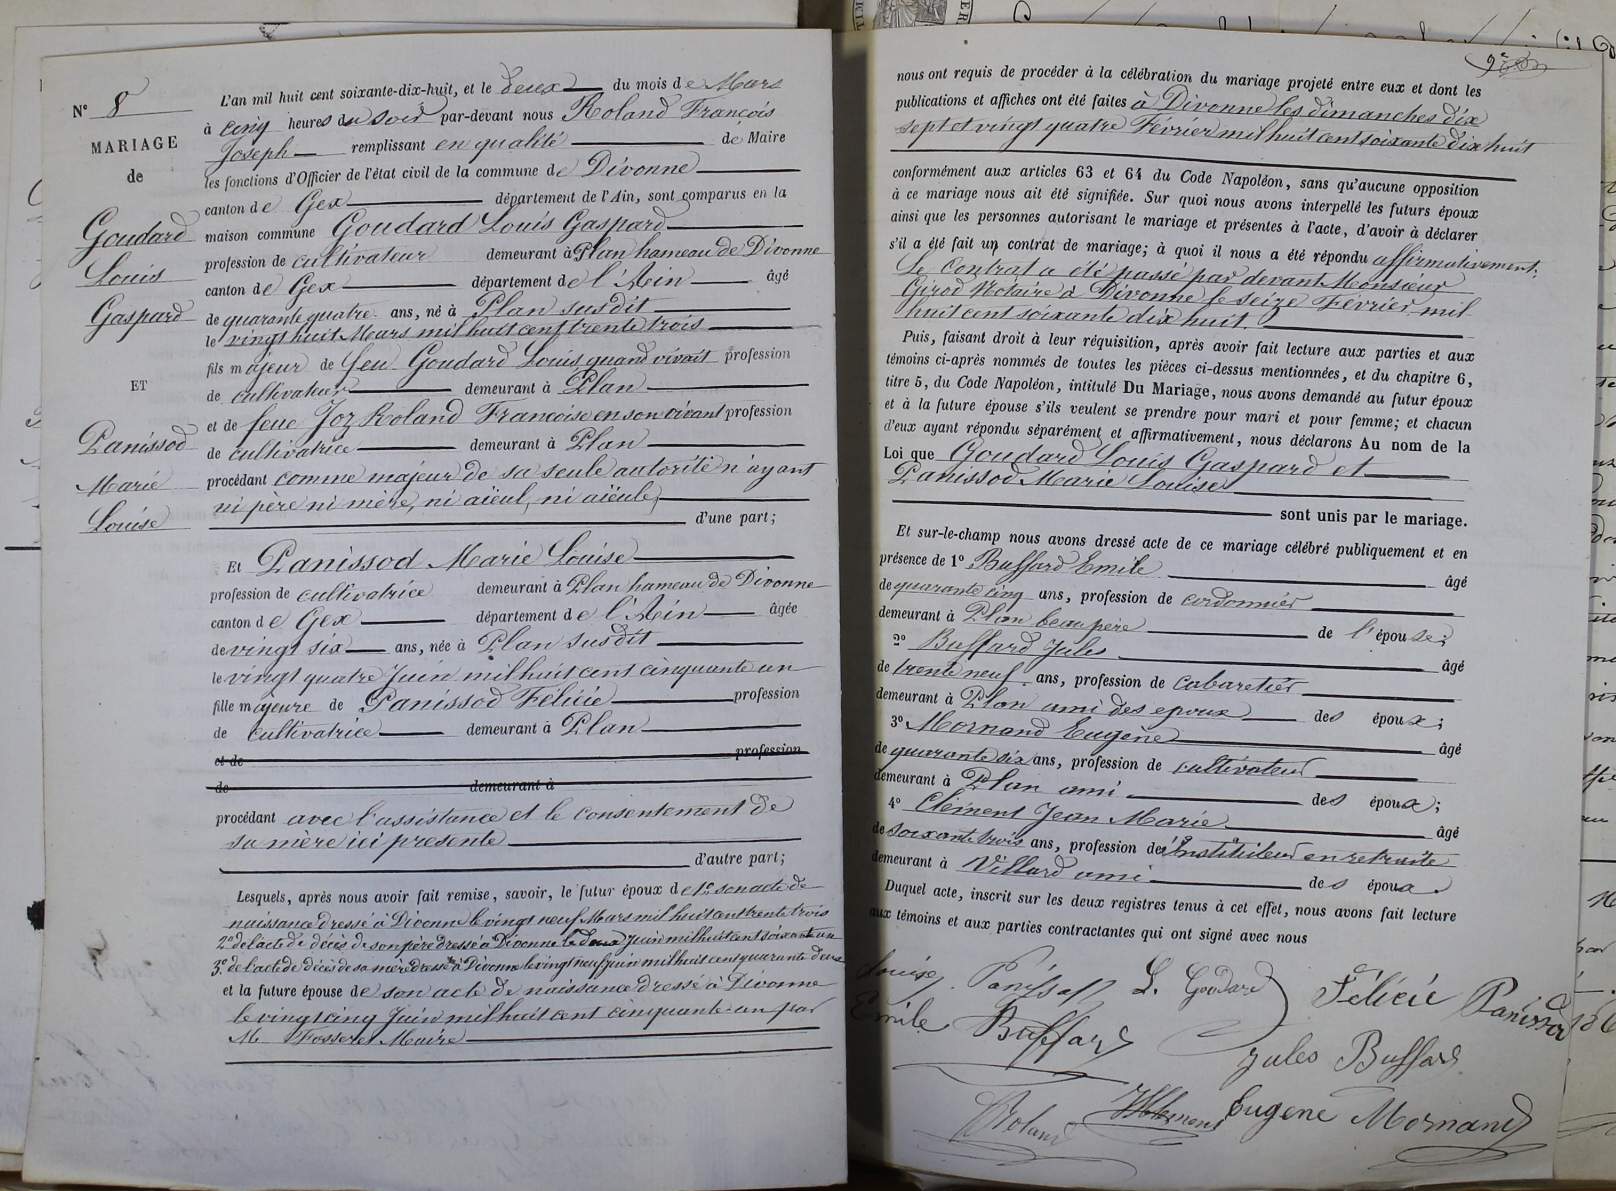 N° 8
MARIAGE
de
Goudard
Louis
Gaspard
ET
Panissod
Marie
Louise
L'an mil huit cent soixante-dix-huit, et le deux du mois de Mars
à cinq heures du soir par-devant nous Roland François
Joseph remplissant en qualité de Maire
les fonctions d'Officier de l'état civil de la commune de Divonne
canton de Gex département de l'Ain, sont comparus en la
maison commune Goudard Louis Gaspard
profession de cultivateur demeurant à Plan hameau de Divonne
canton de Gex département de l'Ain âgé
de quarante quatre ans, né à Plan susdit
le vingt huit Mars mil huit cent trente trois
fils majeur de feu Goudard Louis quand vivait profession
de cultivateur demeurant à Plan
et de feue Joz Roland Françoise en son vivant profession
de cultivatrice demeurant à Plan
procédant comme majeur de sa seule autorité n'ayant
ni père ni mère, ni aïeul, ni aïeule,
d'une part;
Et Panissod Marie Louise
profession de cultivatrice demeurant à Plan hameau de Divonne
canton de Gex département de l'Ain âgée
de vingt six ans, née à Plan susdit
le vingt quatre Juin mil huit cent cinquante un
fille majeure de Panissod Félicie profession
de cultivatrice demeurant à Plan
et de profession
de demeurant à
procédant avec l'assistance et le consentement de
sa mère ici présente
d'autre part;
Lesquels, après nous avoir fait remise, savoir, le futur époux de 1° son acte de
naissance dressé à Divonne le vingt neuf Mars mil huit cent trente trois
2° de l'acte de décès de son père dressé à Divonne le deux Juin mil huit cent soixante un
3° de l'acte de décès de sa mère dressé à Divonne le vingt neuf juin mil huit cent quarante deux
et la future épouse de son acte de naissance dressé à Divonne
le vingt cinq Juin mil huit cent cinquante-un par
M Maire
nous ont requis de procéder à la célébration du mariage projeté entre eux et dont les
publications et affiches ont été faites à Divonne les dimanches dix
sept et vingt quatre Février mil huit cent soixante dix huit
conformément aux articles 63 et 64 du Code Napoléon, sans qu'aucune opposition
à ce mariage nous ait été signifiée. Sur quoi nous avons interpellé les futurs époux
ainsi que les personnes autorisant le mariage et présentes à l'acte, d'avoir à déclarer
s'il a été fait un contrat de mariage; à quoi il nous a été répondu affirmativement.
Le contrat a été passé par devant Monsieur
Girod Notaire à Divonne le seize Février mil
huit cent soixante dix huit.
Puis, faisant droit à leur réquisition, après avoir fait lecture aux parties et aux
témoins ci-après nommés de toutes les pièces ci-dessus mentionnées, et du chapitre 6,
titre 5, du Code Napoléon, intitulé Du Mariage, nous avons demandé au futur époux
et à la future épouse s'ils veulent se prendre pour mari et pour femme; et chacun
d'eux ayant répondu séparément et affirmativement, nous déclarons Au nom de la
Loi que Goudard Louis Gaspard et
Panissod Marie Louise
sont unis par le mariage.
Et sur-le-champ nous avons dressé acte de ce mariage célébré publiquement et en
présence de 1° Buffard Emile âgé
de quarante cinq ans, profession de cordonnier
demeurant à Plan beau père de l'épouse;
2° Buffard Jules âgé
de trente neuf ans, profession de cabaretier
demeurant à Plan ami des époux des époux;
3° Mornand Eugène âgé
de quarante six ans, profession de cultivateur
demeurant à Plan ami des époux;
4° Clément Jean Marie âgé
de soixante trois ans, profession de Instituteur en retraite
demeurant à Villard ami des époux.
Duquel acte, inscrit sur les deux registres tenus à cet effet, nous avons fait lecture
aux témoins et aux parties contractantes qui ont signé avec nous
Louise Panissod L. Goudard Félicie Panissod
Emile Buffard Jules Buffard
Roland Clément Eugène Mornand